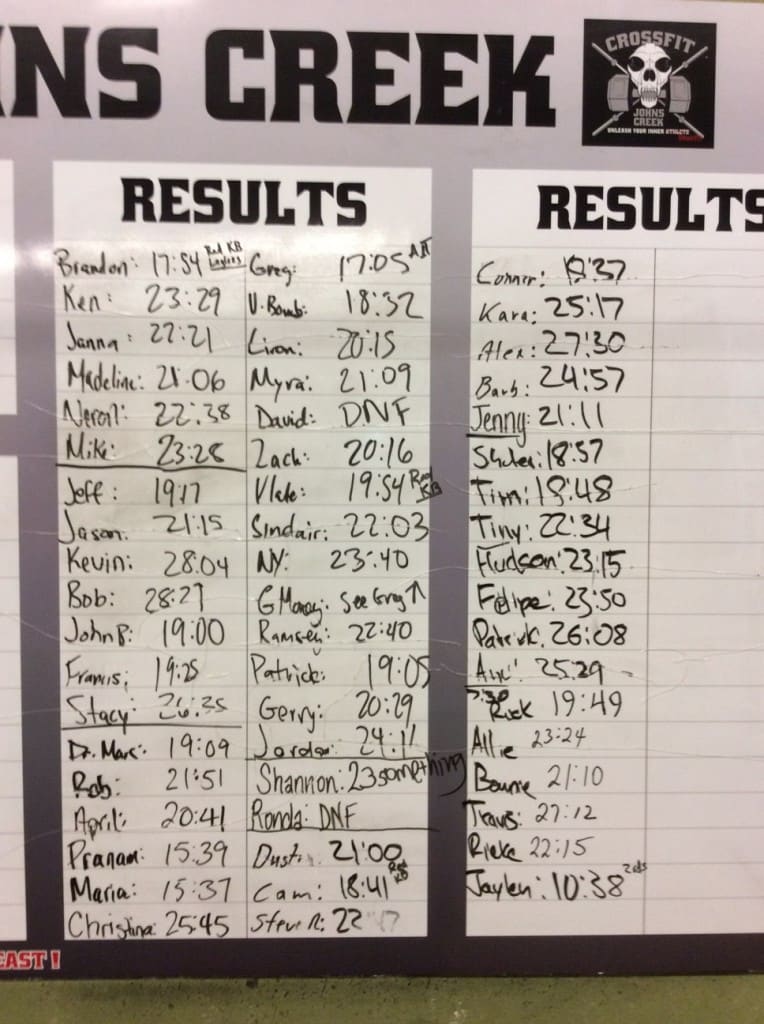 NS CREEK
CROSSFIT
JOHNS
CREEK
UNLEASH YOUR INNER ATHLETE
RESULTS
Brandon: 17:54 Red KB
Ken: 23:29
Janna: 22:21
Madeline: 21:06
22:38
Mike: 23:28
Jeff: 19:17
Jason: 21:15
Kevin: 28:04
Bob: 28:27
John P: 19:00
Francis: 19:25
Stacy: 26:35
Dr. Marc: 19:09
Rob: 21:51
April: 20:41
Pranam: 15:39
Maria: 15:37
Christina: 25:45
Greg: 17:05
V-Bomb: 18:32
Liron: 20:15
Myra: 21:09
David: DNF
Zach: 20:16
Vlade: 19:54 Red KB
Sindair: 22:03
NY: 23:40
G Money: See Greg ↑
Ramsey: 22:40
Patrick: 19:05
Gerry: 20:29
Jordan: 24:11
Shannon: 23 something
Ronda: DNF
Dust 21:00
Cam: 18:41 Red KB
Steve R: 22 47
RESULTS
Connor: :37
Kara: 25:17
Alex: 27:30
Barb: 24:57
Jenny: 21:11
18:57
Tim: 18:48
Tiny: 22:34
Hudson: 23:15
Felipe: 23:50
Patrick: 26:08
25:29
5:30
Rick 19:49
Allie 23:24
Bourne 21:10
Travis: 27:12
22:15
Jaylen: 10:38
EAST!